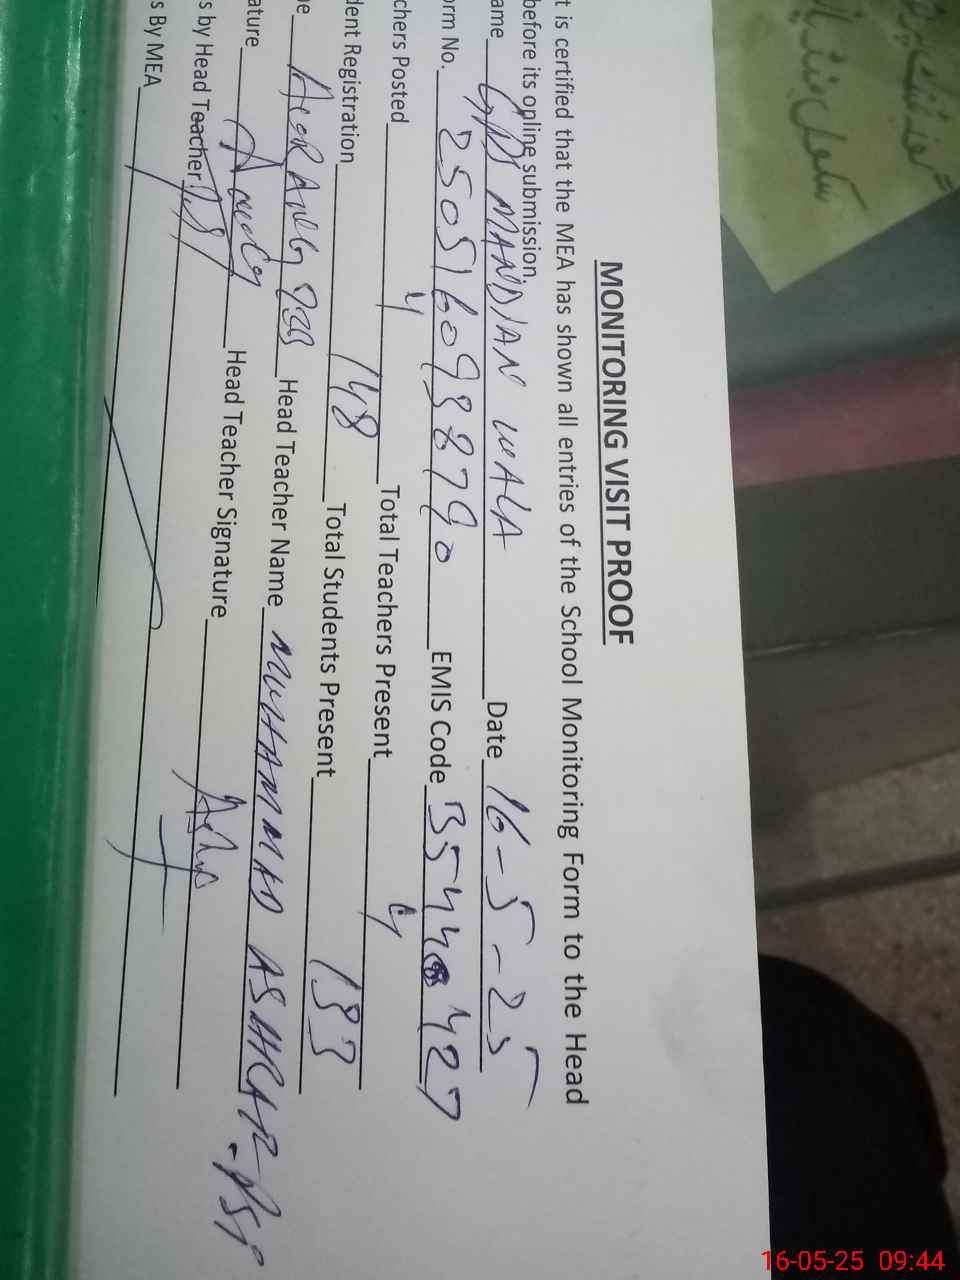 MONITORING VISIT PROOF
t is certified that the MEA has shown all entries of the School Monitoring Form to the Head
before its online submission.
ame GPS MANDIAN WALA Date 16-5-25
orm No. 2505160938790 EMIS Code 3544 427
chers Posted 4 Total Teachers Present 4
dent Registration 148 Total Students Present 133
ne Head Teacher Name MUHAMMAD ASHGAR
ature Head Teacher Signature
s by Head Teacher
s By MEA
16-05-25 09:44